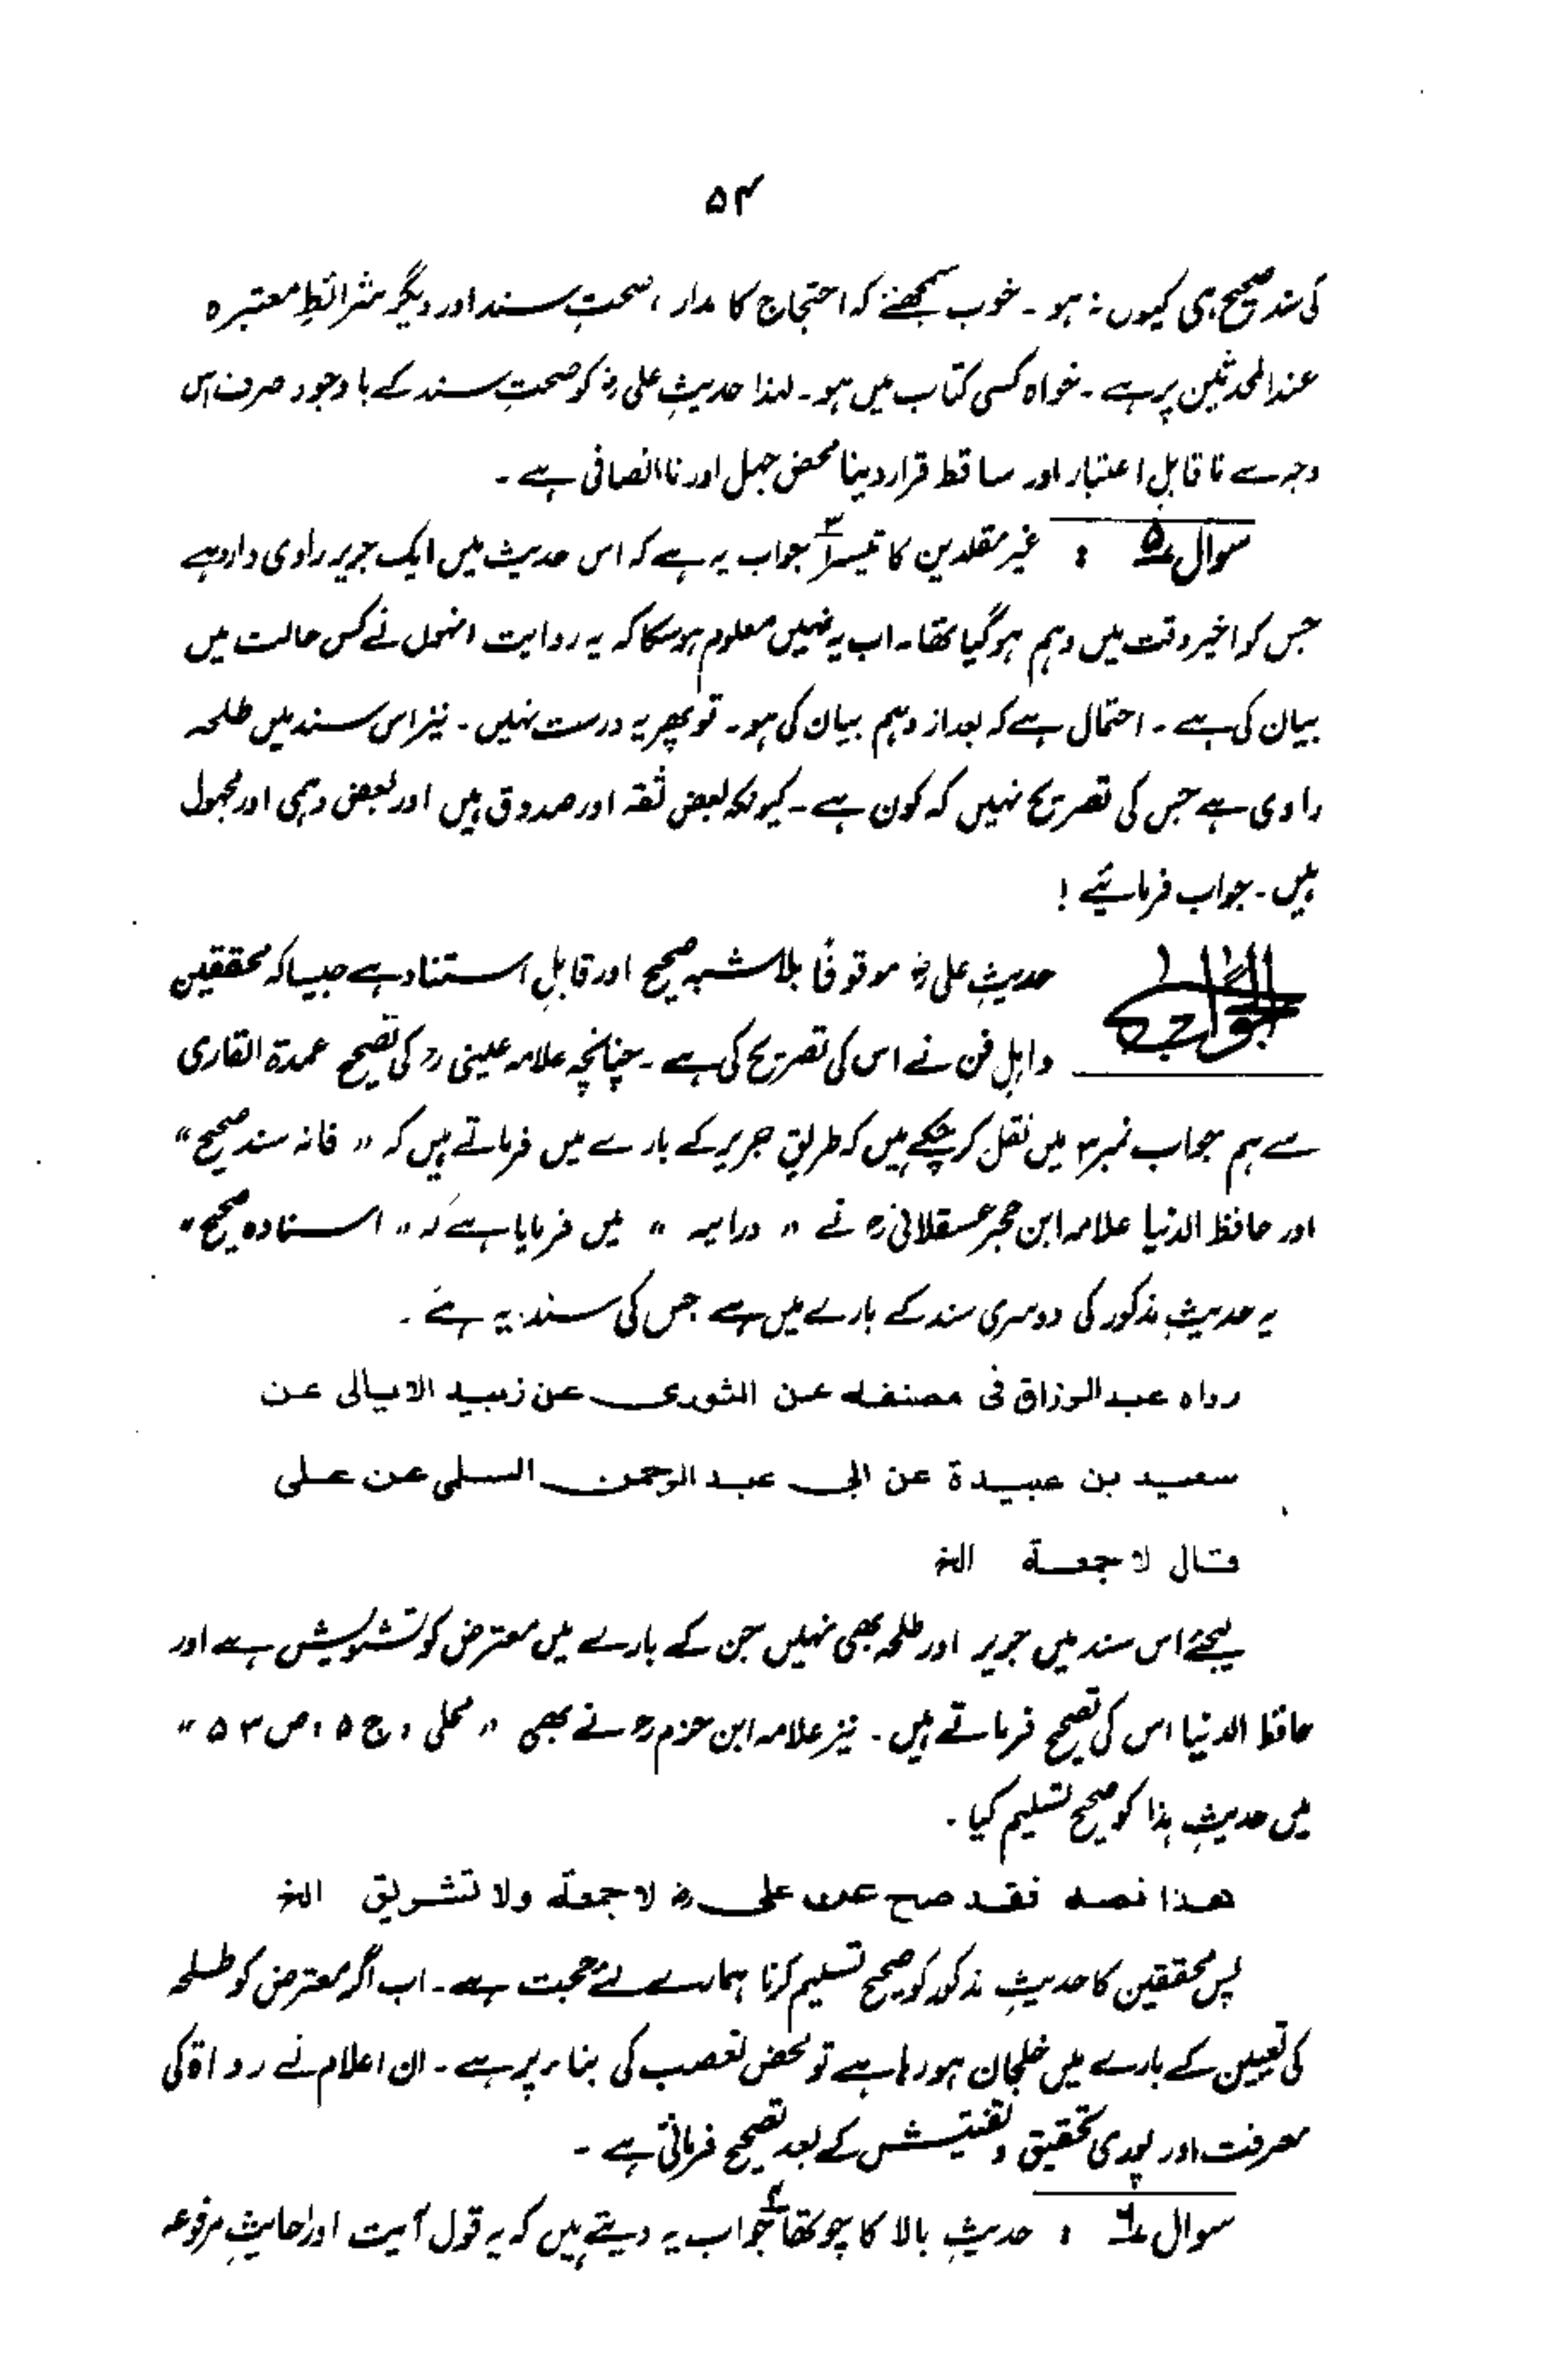 ۵۴
کی سند صحیح ہی کیوں نہ ہو۔ خوب سمجھئے کہ احتجاج کا مدار، صحتِ سند اور دیگر شرائطِ معتبرہ
عند المحدثین پر ہے۔ خواہ کسی کتاب میں ہو۔ لہذا حدیثِ علی رض کو صحتِ سند کے باوجود صرف اس
وجہ سے ناقابلِ اعتبار اور ساقط قرار دینا محض جہل اور ناانصافی ہے۔
سوال ۵ : غیر مقلدین کا تیسرا ۳ جواب یہ ہے کہ اس حدیث میں ایک جریر راوی وارد ہے
جس کو اخیر وقت میں وہم ہو گیا تھا۔ اب یہ نہیں معلوم ہو سکا کہ یہ روایت انہوں نے کس حالت میں
بیان کی ہے۔ احتمال ہے کہ بعد از وہم بیان کی ہو۔ تو پھر یہ درست نہیں۔ نیز اس سند میں طلحہ
راوی ہے جس کی تصریح نہیں کہ کون ہے۔ کیونکہ بعض ثقہ اور صدوق ہیں اور بعض وہمی اور مجہول
ہیں۔ جواب فرمائیے!
الجواب حدیثِ علی رض موقوفًا بلاشبہ صحیح اور قابلِ استناد ہے جیسا کہ محققین
و اہلِ فن نے اس کی تصریح کی ہے۔ چنانچہ علامہ عینی رح کی تصحیح عمدۃ القاری
سے ہم جواب نمبر ۳ میں نقل کر چکے ہیں کہ طریقِ جریر کے بارے میں فرماتے ہیں کہ " فانہ سند صحیح "
اور حافظ الدنیا علامہ ابن حجر عسقلانی رح نے " درایہ " میں فرمایا ہے کہ " اسنادہ صحیح "
یہ حدیثِ مذکور کی دوسری سند کے بارے میں ہے جس کی سند یہ ہے۔
رواه عبد الرزاق فی مصنفه عن الثوری عن زبید الایالی عن
سعید بن عبیدة عن ابی عبد الرحمن السلمی عن علی
قال لا جمعة الخ
لیجئے اس سند میں جریر اور طلحہ بھی نہیں جن کے بارے میں معترض کو تشویش ہے اور
حافظ الدنیا اس کی تصحیح فرماتے ہیں۔ نیز علامہ ابن حزم رح نے بھی " محلی، ج ۵، ص ۵۳ "
میں حدیثِ ہذا کو صحیح تسلیم کیا۔
هذا نصه فقد صح عن علی رض لا جمعة ولا تشریق الخ
پس محققین کا حدیثِ مذکور کو صحیح تسلیم کرنا ہمارے لئے حجت ہے۔ اب اگر معترض کو طلحہ
کی تعیین کے بارے میں خلجان ہو رہا ہے تو محض تعصب کی بناء پر ہے۔ ان اعلام نے رواۃ کی
معرفت اور پوری تحقیق و تفتیش کے بعد تصحیح فرمائی ہے۔
سوال ۶ : حدیثِ بالا کا چوتھا ۴ جواب یہ دیتے ہیں کہ یہ قول آیت اور احادیثِ مرفوعہ